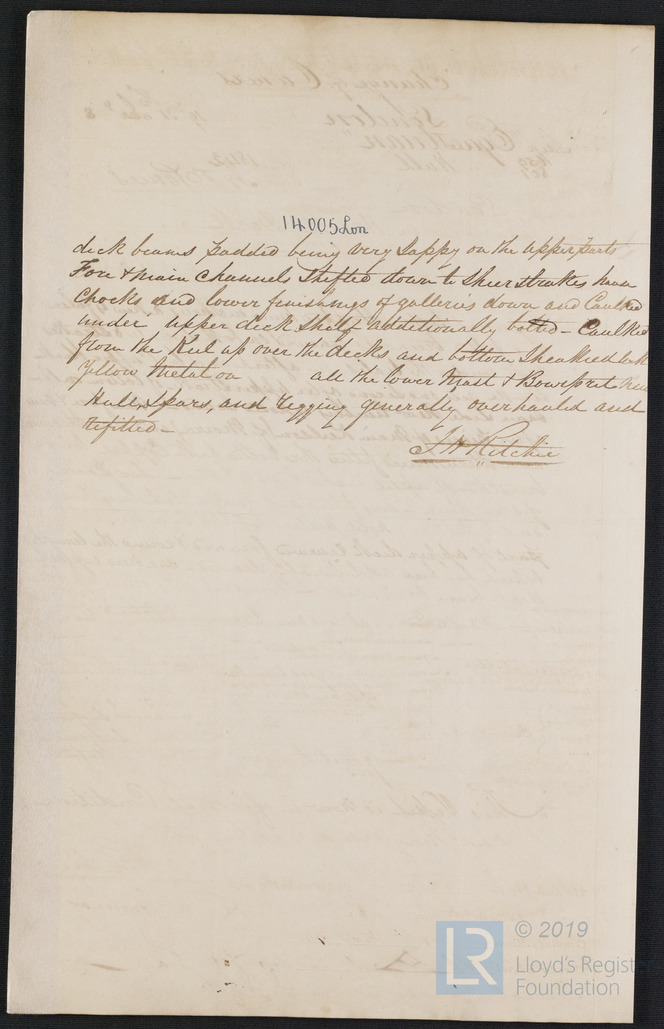 14005 Lon
deck beams padded being very Sappy on the upper parts
Fore & main Channels Shifted down to Sheerstrakes
Chocks and lower finishings of galleries down and Caulked
under upper deck Shelf additionally bolted - Caulked
from the Keel up over the decks and bottom
Yellow Metal on all the lower Mast & Bowsprit new
Hull, Spars, and rigging generally overhauled and
refitted -
J H Ritchie
LR © 2019
Lloyd's Register
Foundation